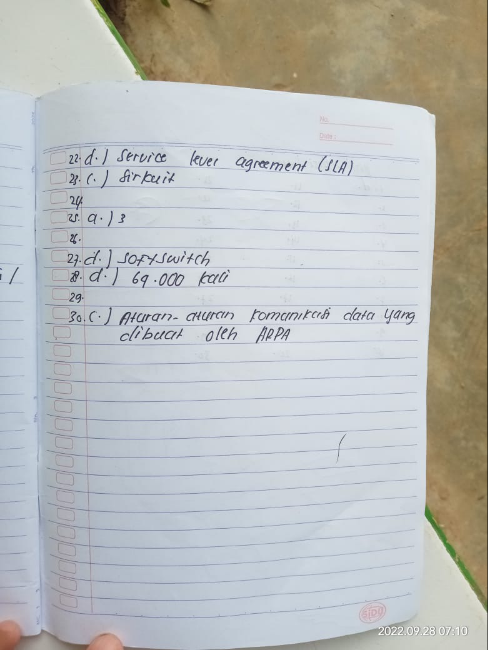 No.
Date:
22. d.) Service lever agreement (SLA)
23. c.) Sirkuit
24.
25. a.) 3
26.
27. d.) SOFTSWITCH
28. d.) 69.000 kali
29.
30. c.) Aturan-aturan komunikasi data yang
dibuat oleh ARPA
SIDU
2022.09.28 07:10